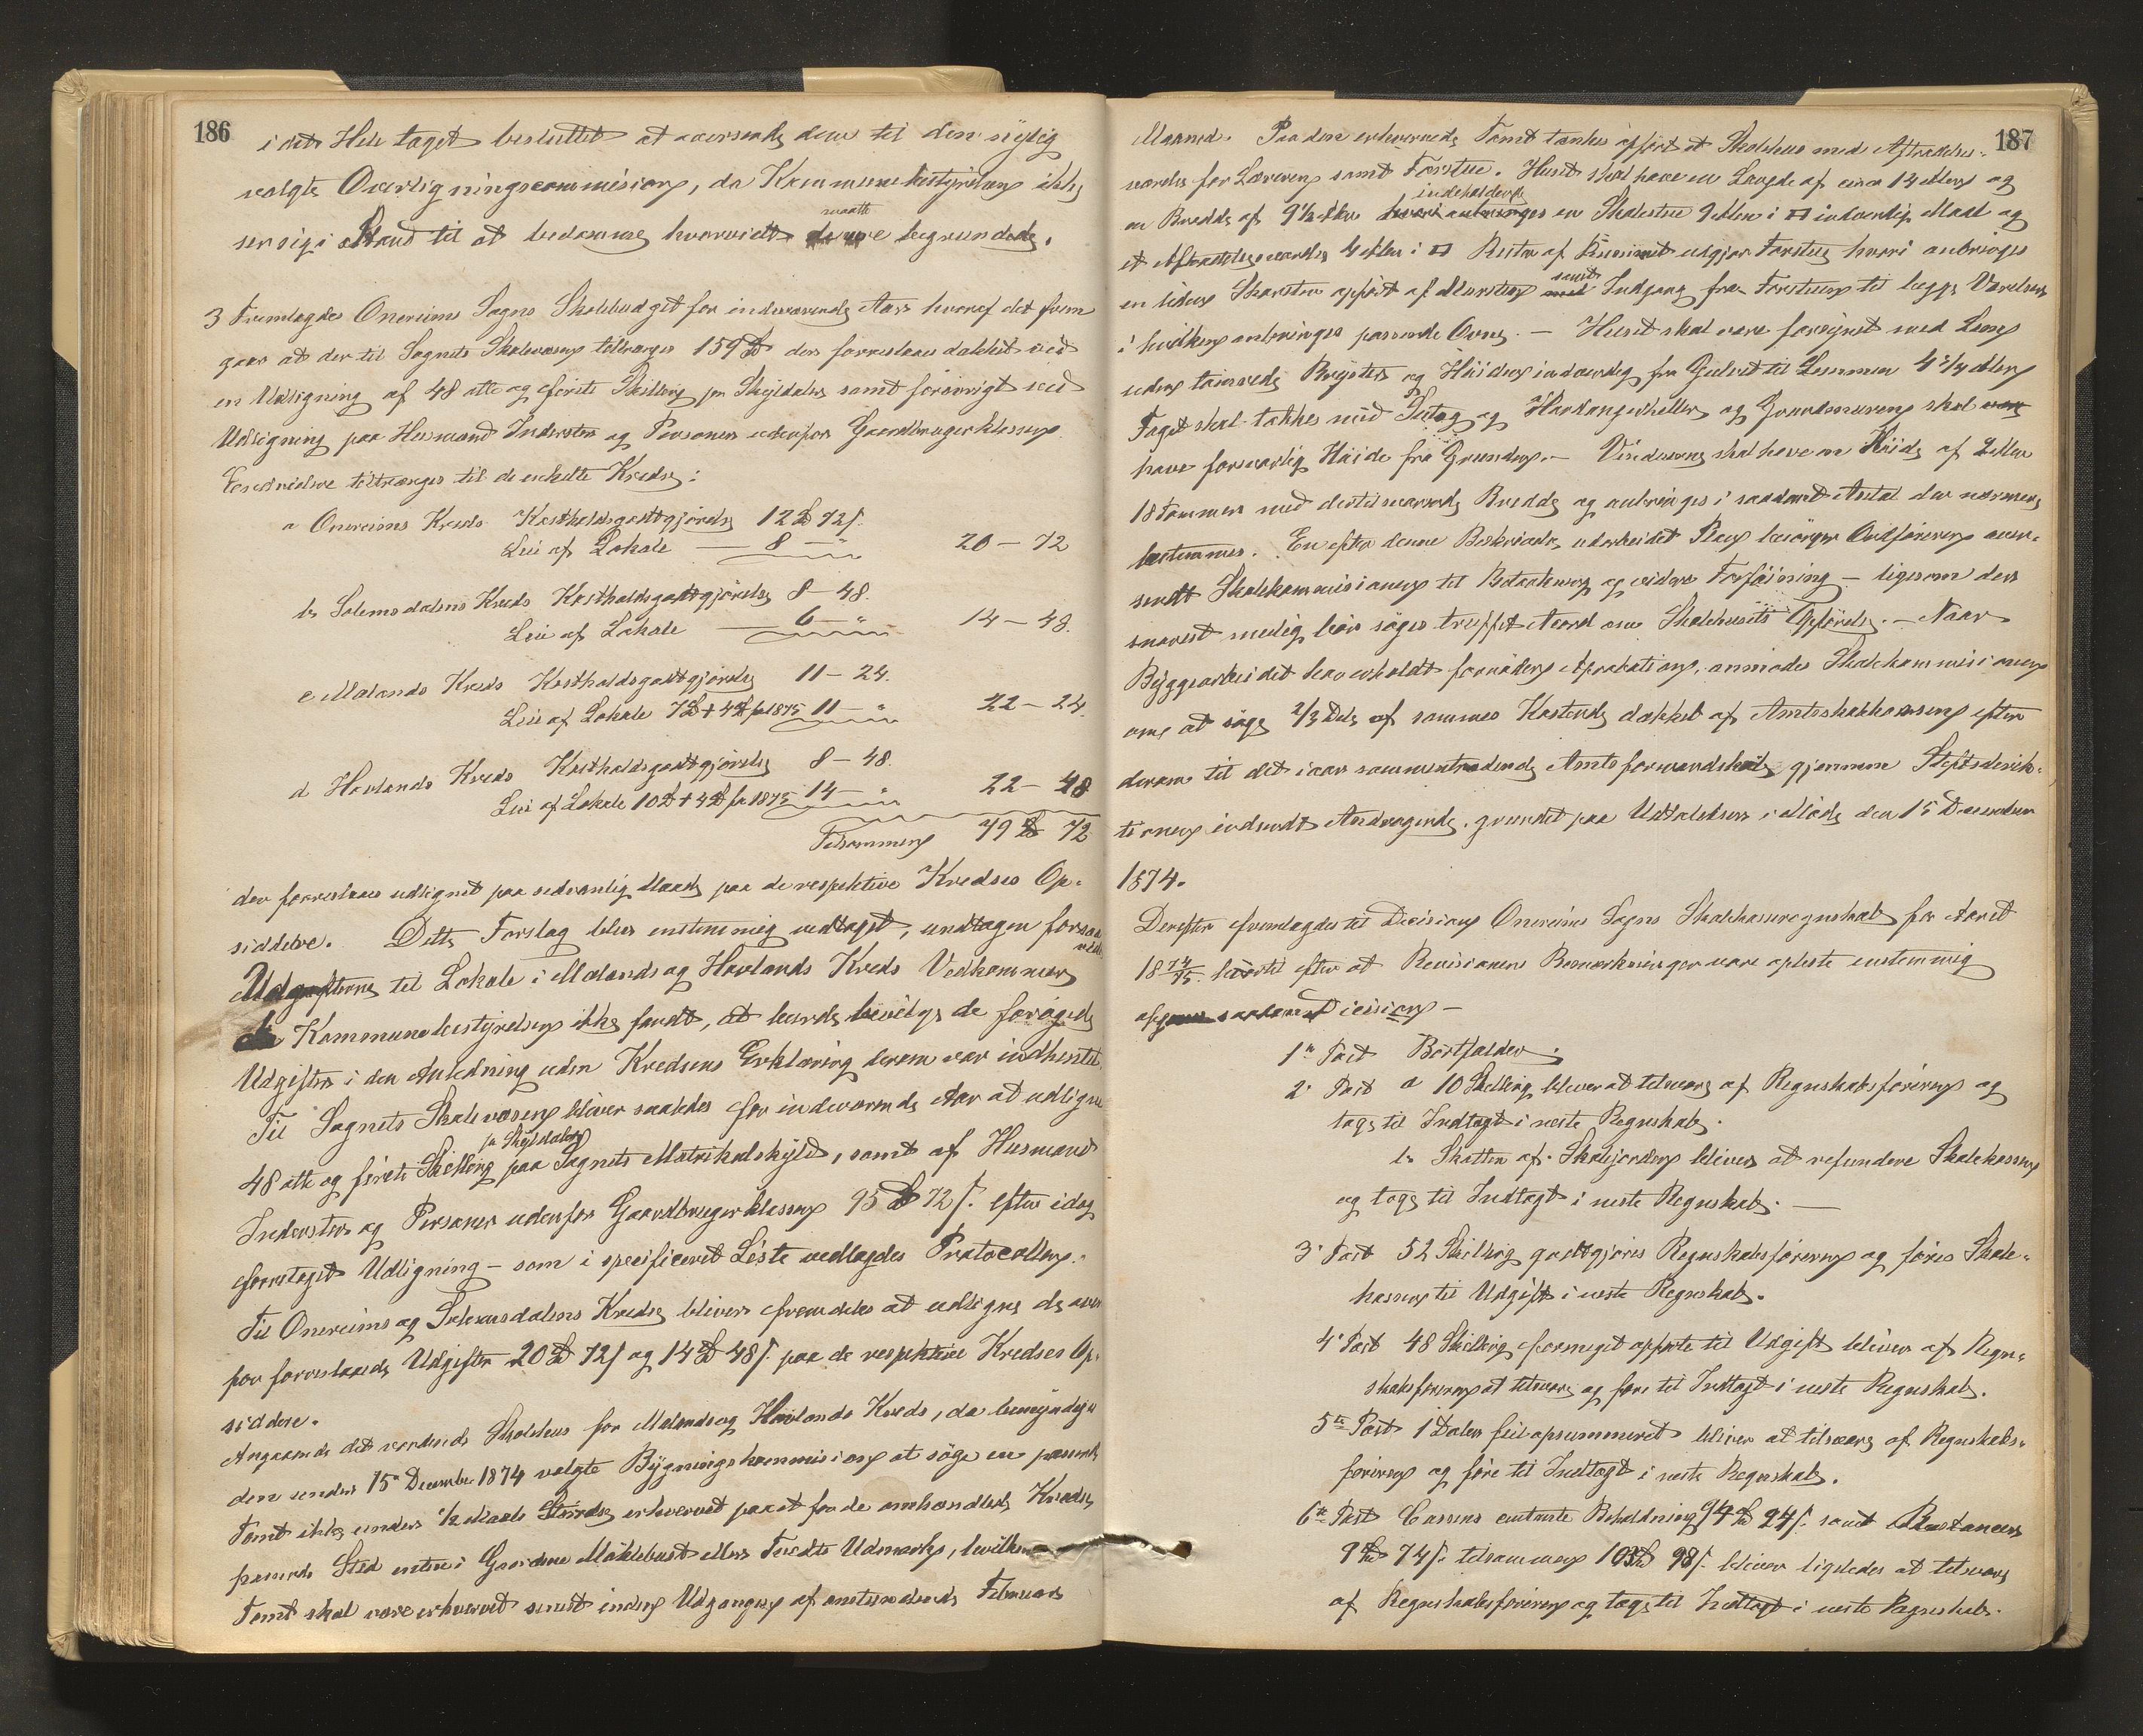 186
i det Hele taget besluttet at oversende dem til den nylig
valgte Overligningscommission, da Kommunebestyrelsen ikke
ser sig i Stand til at bedømme hvorvidt maatte være begrundede.
3 Fremlagdes Onereims Sogns Skolebudget for indeværende Aar hvoraf det frem
gaar at der til Sognets Skolevæsen tiltrænges 159 Spd der forreslaaes dækket ved
en Udligning af 48 otte og firti Skilling pr Skylddaler samt forøvrigt ved
Udligning paa Husmænd Inderster og Personer udenfor Gaardbrugerklassen
Endvidere tiltrænges til de enkelte Kredse:
a Onereims Kreds Kostholdsgodtgjørelse 12 Spd 72 s.
Leie af Lokale — 8 — " 20 — 72
b Solemsdalens Kreds Kostholdsgodtgjørelse 8 — 48.
Leie af Lokale — 6 — " 14 — 48.
c Malands Kreds Kostholdsgodtgjørelse 11 — 24.
Leie af Lokale 7 Spd + 4 Spd for 1875 11 — " 22 — 24.
d Hovlands Kreds Kostholdsgodtgjørelse 8 — 48.
Leie af Lokale 10 Spd + 4 Spd for 1875 14 — " 22 — 48
Tilsammen 79 Spd 72
der forreslaaes udlignet paa sedvanlig Maade paa de respektive Kredses Op-
siddere. Dette Forslag blev enstemmig vedtaget, undtagen forsaavidt
Udgifterne til Lokale i Malands og Hovlands Kreds Vedkommer
da Kommunebestyrelsen ikke fandt, at burde bevilge de forøgede
Udgifter i den Anledning uden Kredsens Erklæring derom var indhentet.
Til Sognets Skolevæsen bliver saaledes for indeværende Aar at udligne
48 otte og firti Skilling pr Skylddaler paa Sognets Matrikulskyld, samt af Husmænd
Inderster og Personer udenfor Gaardbrugerklassen 95 Spd 72 s. efter idag
foretaget Udligning – som i specificeret Liste vedlagdes Protocollen.
Til Onereims og Solemsdalens Kredse bliver fremdeles at udligne de oven
for forreslaaede Udgifter 20 Spd 72 s og 14 Spd 48 s. paa de respektive Kredses Op-
siddere.
Angaaende det vordende Skolehus for Malands og Hovlands Kreds, da bemyndiges
den under 15de December 1874 valgte Bygningskommission at søge en passende
Tomt ikke under ½ Maals Størrelse erhvervet paa et for de omhandlede Kredse
passende Sted enten i Gaardene Møklebust eller Tvedts Udmark, hvilken
Tomt skal være erhvervet senest inden Udgangen af anstundende Februar
187
Maaned. Paa den erhvervede Tomt tænkes opført et Skolehus med Aftrædelses-
værelse for Læreren samt Forstue. Huset skal have en Længde af circa 14 Alen og
en Bredde af 9½ Alen indeholdende en Skolestue 9 Alen i □ indvendig Maal og
et Aftrædelsesværelse 4 Alen i □ Resten af Rummet udgjør Forstue hvori anbringes
en liden Skorsten opført af Mursten samt Indgang fra Forstuen til begge Værelser
i hvilken anbringes passende Ovne. — Huset skal være forsynet med Lem
uden tømrede Røyster og Høiden indvendig fra Gulvet til Lemmen 4¼ Alen
Taget skal tækkes med Sutag og Hardangerheller og Grundmuren skal
have forsvarlig Høide fra Grunden. — Vinduerne skal have en Høide af 2 Alen
18 Tommer med dertil svarende Bredde og anbringes i saadant Antal der nærmere
bestemmes. En efter denne Beskrivelse udarbeidet Plan besørger Ordføreren over-
sendt Skolekommissionen til Betænkning og videre Forføining – ligesom der
snarest mulig bør søges truffet Akord om Skolehusets Opførelse. — Naar
Byggearbeidet har erholdt fornøden Aprobation, anmodes Skolekommissionen
om at søge 2/3 Dele af sammes Kostende dækket af Amtsskolekassen efter
derom til det i aar sammentrædende Amtsformandskab gjennem Stiftsdirek-
tionen indsendt Andragende. grundet paa Udtalelser i Møde den 15 December
1874.
Derefter fremlagdes til Decision Onereims Sogns Skolekasseregnskab for Aaret
1874/75. hvortil efter at Revisionens Bemærkninger vare opleste enstemmig
Decision —
1ste Post Bortfalder.
2. Post a 10 Skilling bliver at tilsvare af Regnskabsføreren og
tage til Indtægt i næste Regnskab.
b Skatten af Skolejorden bliver at refundere Skolekassen
og tage til Indtægt i næste Regnskab. —
3. Post 52 Skilling godtgjøres Regnskabsføreren og føres Skole-
kassen til Udgift i næste Regnskab.
4. Post 48 Skilling formeget opførte til Udgift bliver af Regn-
skabsføreren at tilsvare og føre til Indtægt i næste Regnskab.
5te Post 1 Daler feilopsummeret bliver at tilsvare af Regnskabs-
føreren og føre til Indtægt i næste Regnskab.
6te Post Cassens contante Beholdning 94 Spd 24 s. samt Restancer
9 Spd 74 s. tilsammen 103 Spd 98 s. bliver ligeledes at tilsvare
af Regnskabsføreren og tage til Indtægt i næste Regnskab.